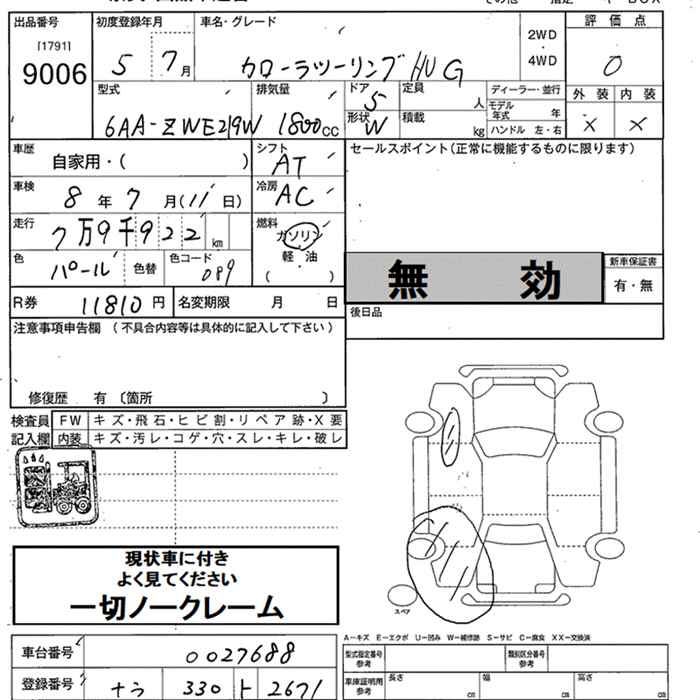 出品番号 初度登録年月 車名・グレード 2WD・4WD 評価点
[1791]
9006 5 7月 カローラツーリング HVG 0
型式 排気量 ドア 5 定員 人 ディーラー・並行 外装 内装
6AA-ZWE219W 1800cc 形状 W 積載 kg モデル年式 年 ハンドル 左・右 × ×
車歴 自家用・( ) シフト AT セールスポイント(正常に機能するものに限ります)
車検 8年 7月(11日) 冷房 AC
走行 7万9千922km 燃料 ガソリン
色 パール 色替 色コード 089 軽油 ( ・ )
新車保証書
無効 有・無
R券 11810円 名変期限 月 日 後日品
注意事項申告欄 (不具合内容等は具体的に記入して下さい)
修復歴 有 〔箇所 〕
検査員 FW キズ・飛石・ヒビ割・リペア跡・X要
記入欄 内装 キズ・汚レ・コゲ・穴・スレ・キレ・破レ
現状車に付き
よく見てください
一切ノークレーム
スペア
A−キズ E−エクボ U−凹み W−補修跡 S−サビ C−腐食 XX−交換済
車台番号 0027688 型式指定番号 参考 類別区分番号 参考
登録番号 330 ト 2671 車庫証明用 参考 長さ cm 幅 cm 高さ cm